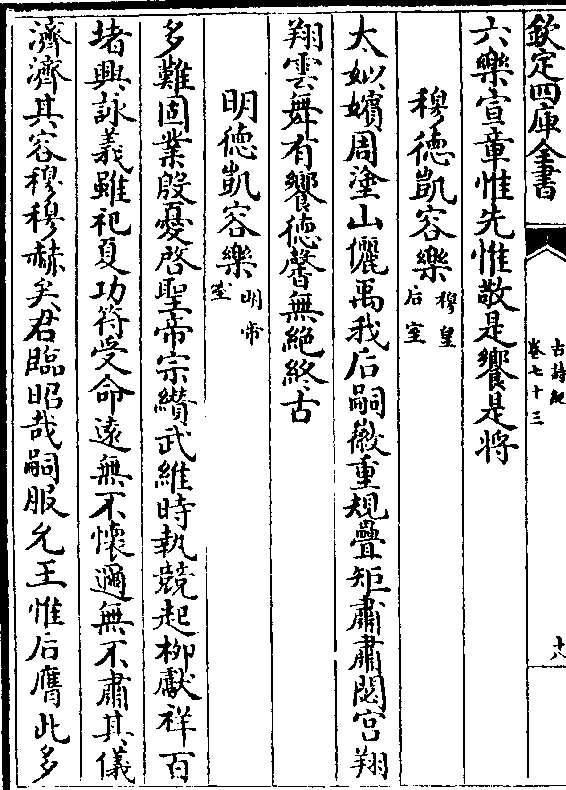 欽定四庫全書
古詩紀
卷七十三
十八
六樂宣章惟先惟敬是饗是將
穆德凱容樂穆皇后室
太姒嬪周塗山儷禹我后嗣徽重規疊矩肅肅閟宮翔
翔雲舞有饗德馨無絶終古
明德凱容樂明帝室
多難固業殷憂啓聖帝宗纘武維時執競起栁獻祥百
堵興詠義雖祀夏功符受命遠無不懷邇無不肅其儀
濟濟其容穆穆赫矣君臨昭哉嗣服允王惟后膺此多